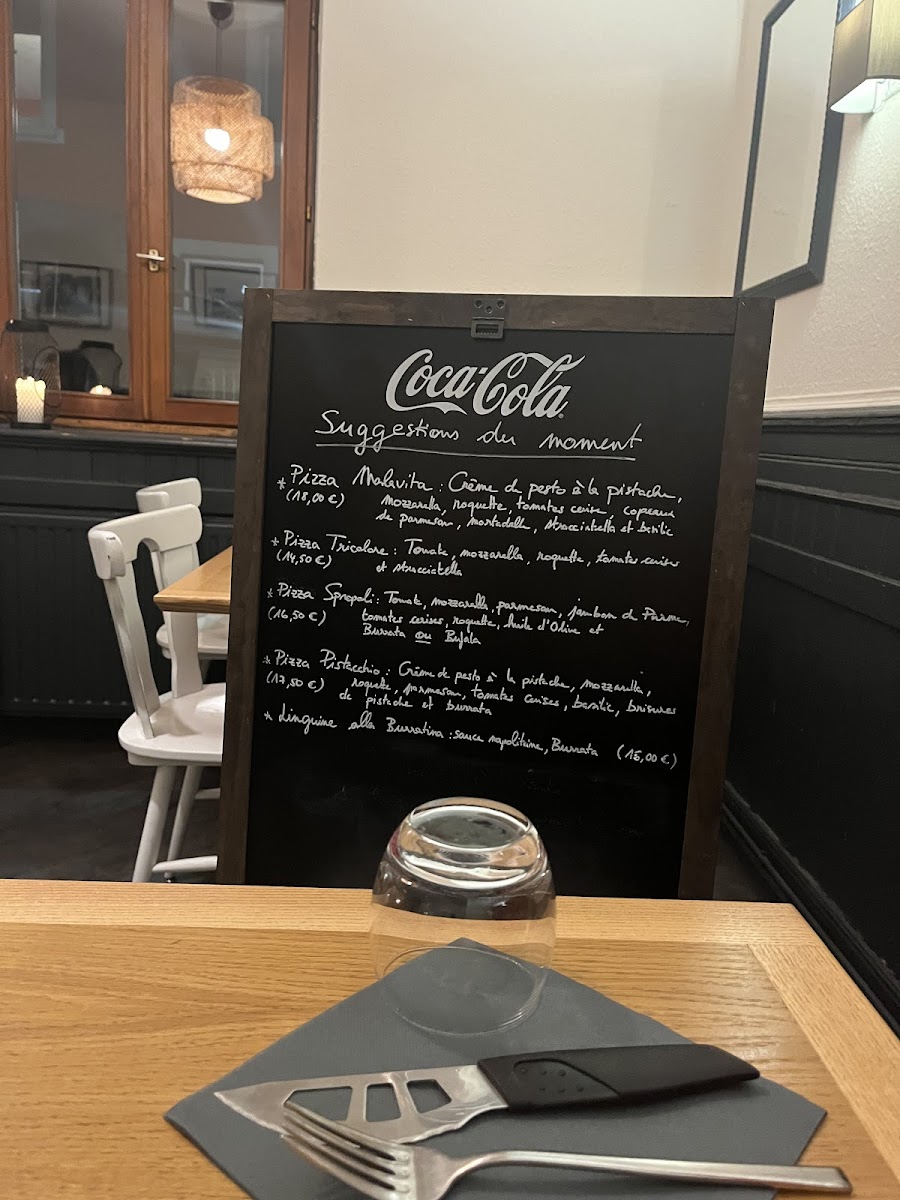 Coca-Cola
Suggestions du moment
* Pizza Malavita : Crème de pesto à la pistache,
(18,00 €) mozzarella, roquette, tomates cerise, copeaux
de parmesan, mortadelle, stracciatella et basilic
* Pizza Tricolore : Tomate, mozzarella, roquette, tomates cerises
(14,50 €) et stracciatella
* Pizza Spropoli : Tomate, mozzarella, parmesan, jambon de Parme,
(16,50 €) tomates cerises, roquette, huile d'Olive et
Burrata ou Bufala
* Pizza Pistacchio : Crème de pesto à la pistache, mozzarella,
(17,50 €) roquette, parmesan, tomates cerises, basilic, brisures
de pistache et burrata
* Linguine alla Burratina : sauce napolitaine, Burrata (15,00 €)